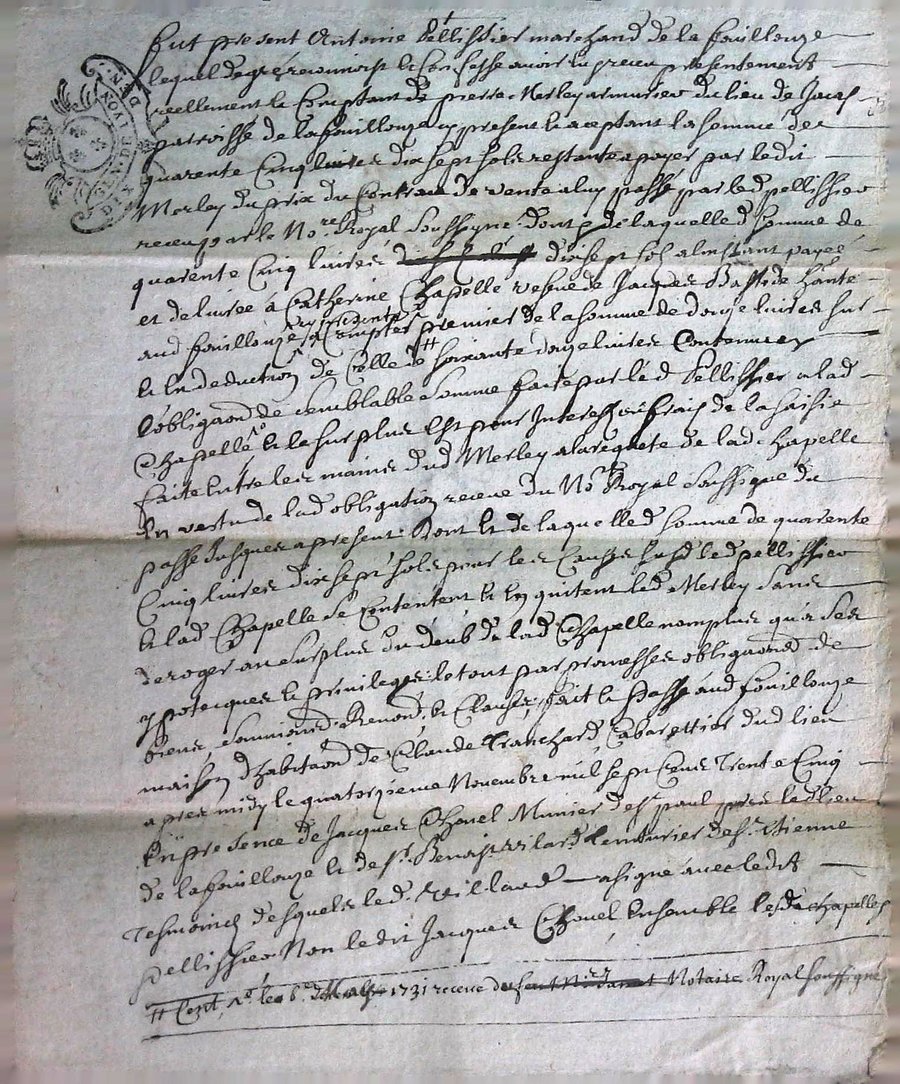 fut present Antoine Pellissier marchand de la fouillouze
lequel de gré reconnoist et confesse avoir eu et receu presentement
reellement et Comptant de pierre Merley armurier du lieu de
parroisse de la fouillouze cy present et aceptant la somme de
quarente Cinq livres dix sept sols restante a payer par ledit
Merley du prix du Contract de vente a luy passé par led pellissier
receu par le No.re Royal soussigné dont et de laquelle d somme de
quarente Cinq livres dix sept sols a linstant payée
et delivrée à Catherine Chapelle vefve de Jacques habitante
aud fouillouze cy presente et aceptante premier de la somme de douze livres sur
et En deduction de Celle de # soixante douze livres Contenue
L'obligaon de semblable somme faite par led Pellissier a lad
Chapelle et le surplus Est pour Interest et frais de la saisie
faite Entre les mains dud Merley a la requete de lad Chapelle
En vertu de lad obligation receue du No.re Royal soussigné du
passé jusques a present Dont et de laquelle d somme de quarente
Cinq livres dix sept sols pour les Causes susd led pellissier
et lad Chapelle se Contentent et En quitent led Merley sans
deroger au surplus du deub de lad Chapelle nomplus qu'a ses
ypoteques et privileges le tout par promesses obligaons de
biens, soumions, Renons, et Clauses, fait et Passé aud fouillouze
maison d'habitaon de Claude Tranchard Cabarettier dud lieu
apres midy le quatorzieme Novembre mil sept Cens Trente Cinq
En presence de Jacques Chovel Munier de st paul pres led lieu
de la fouillouze et de sr Benoist de st Etienne
Tesmoins desquels led a signé avec ledit
pellissier Non ledit Jacques Chovel Ensemble lesd Chapelle
# Cent, le 6e 1731 receue du Notaire Royal soussigné